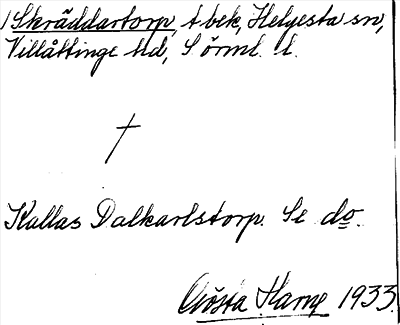 1 Skräddartorp, t bek, Helgesta sn,
Villåttinge hd, Sörml. l.
†
Kallas Dalkarlstorp. Se do.
Gösta Hamp 1933.